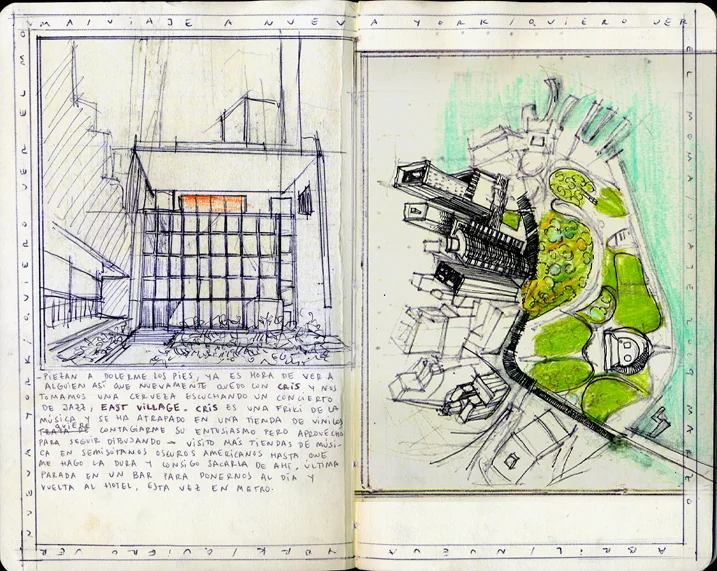 MI VIAJE A NUEVA YORK / QUIERO VER EL MO
-PIEZAN A DOLERME LOS PIES, YA ES HORA DE VER A
ALGUIEN ASÍ QUE NUEVAMENTE QUEDO CON CRIS Y NOS
TOMAMOS UNA CERVEZA ESCUCHANDO UN CONCIERTO
DE JAZZ, EAST VILLAGE. CRIS ES UNA FRIKI DE LA
MÚSICA Y SE HA ATRAPADO EN UNA TIENDA DE VINILOS
QUIERE
TRATA DE CONTAGIARME SU ENTUSIASMO PERO APROVECHO
PARA SEGUIR DIBUJANDO - VISITO MÁS TIENDAS DE MÚSI-
CA EN SEMISÓTANOS OSCUROS AMERICANOS HASTA QUE
ME HAGO LA DURA Y CONSIGO SACARLA DE AHÍ, ÚLTIMA
PARADA EN UN BAR PARA PONERNOS AL DÍA Y
VUELTA AL HOTEL, ESTA VEZ EN METRO.
NUEVA YORK / QUIERO VER EL MO
EL MOMA / VIAJE
ABRIL / NUEVA YORK / QUIERO VER